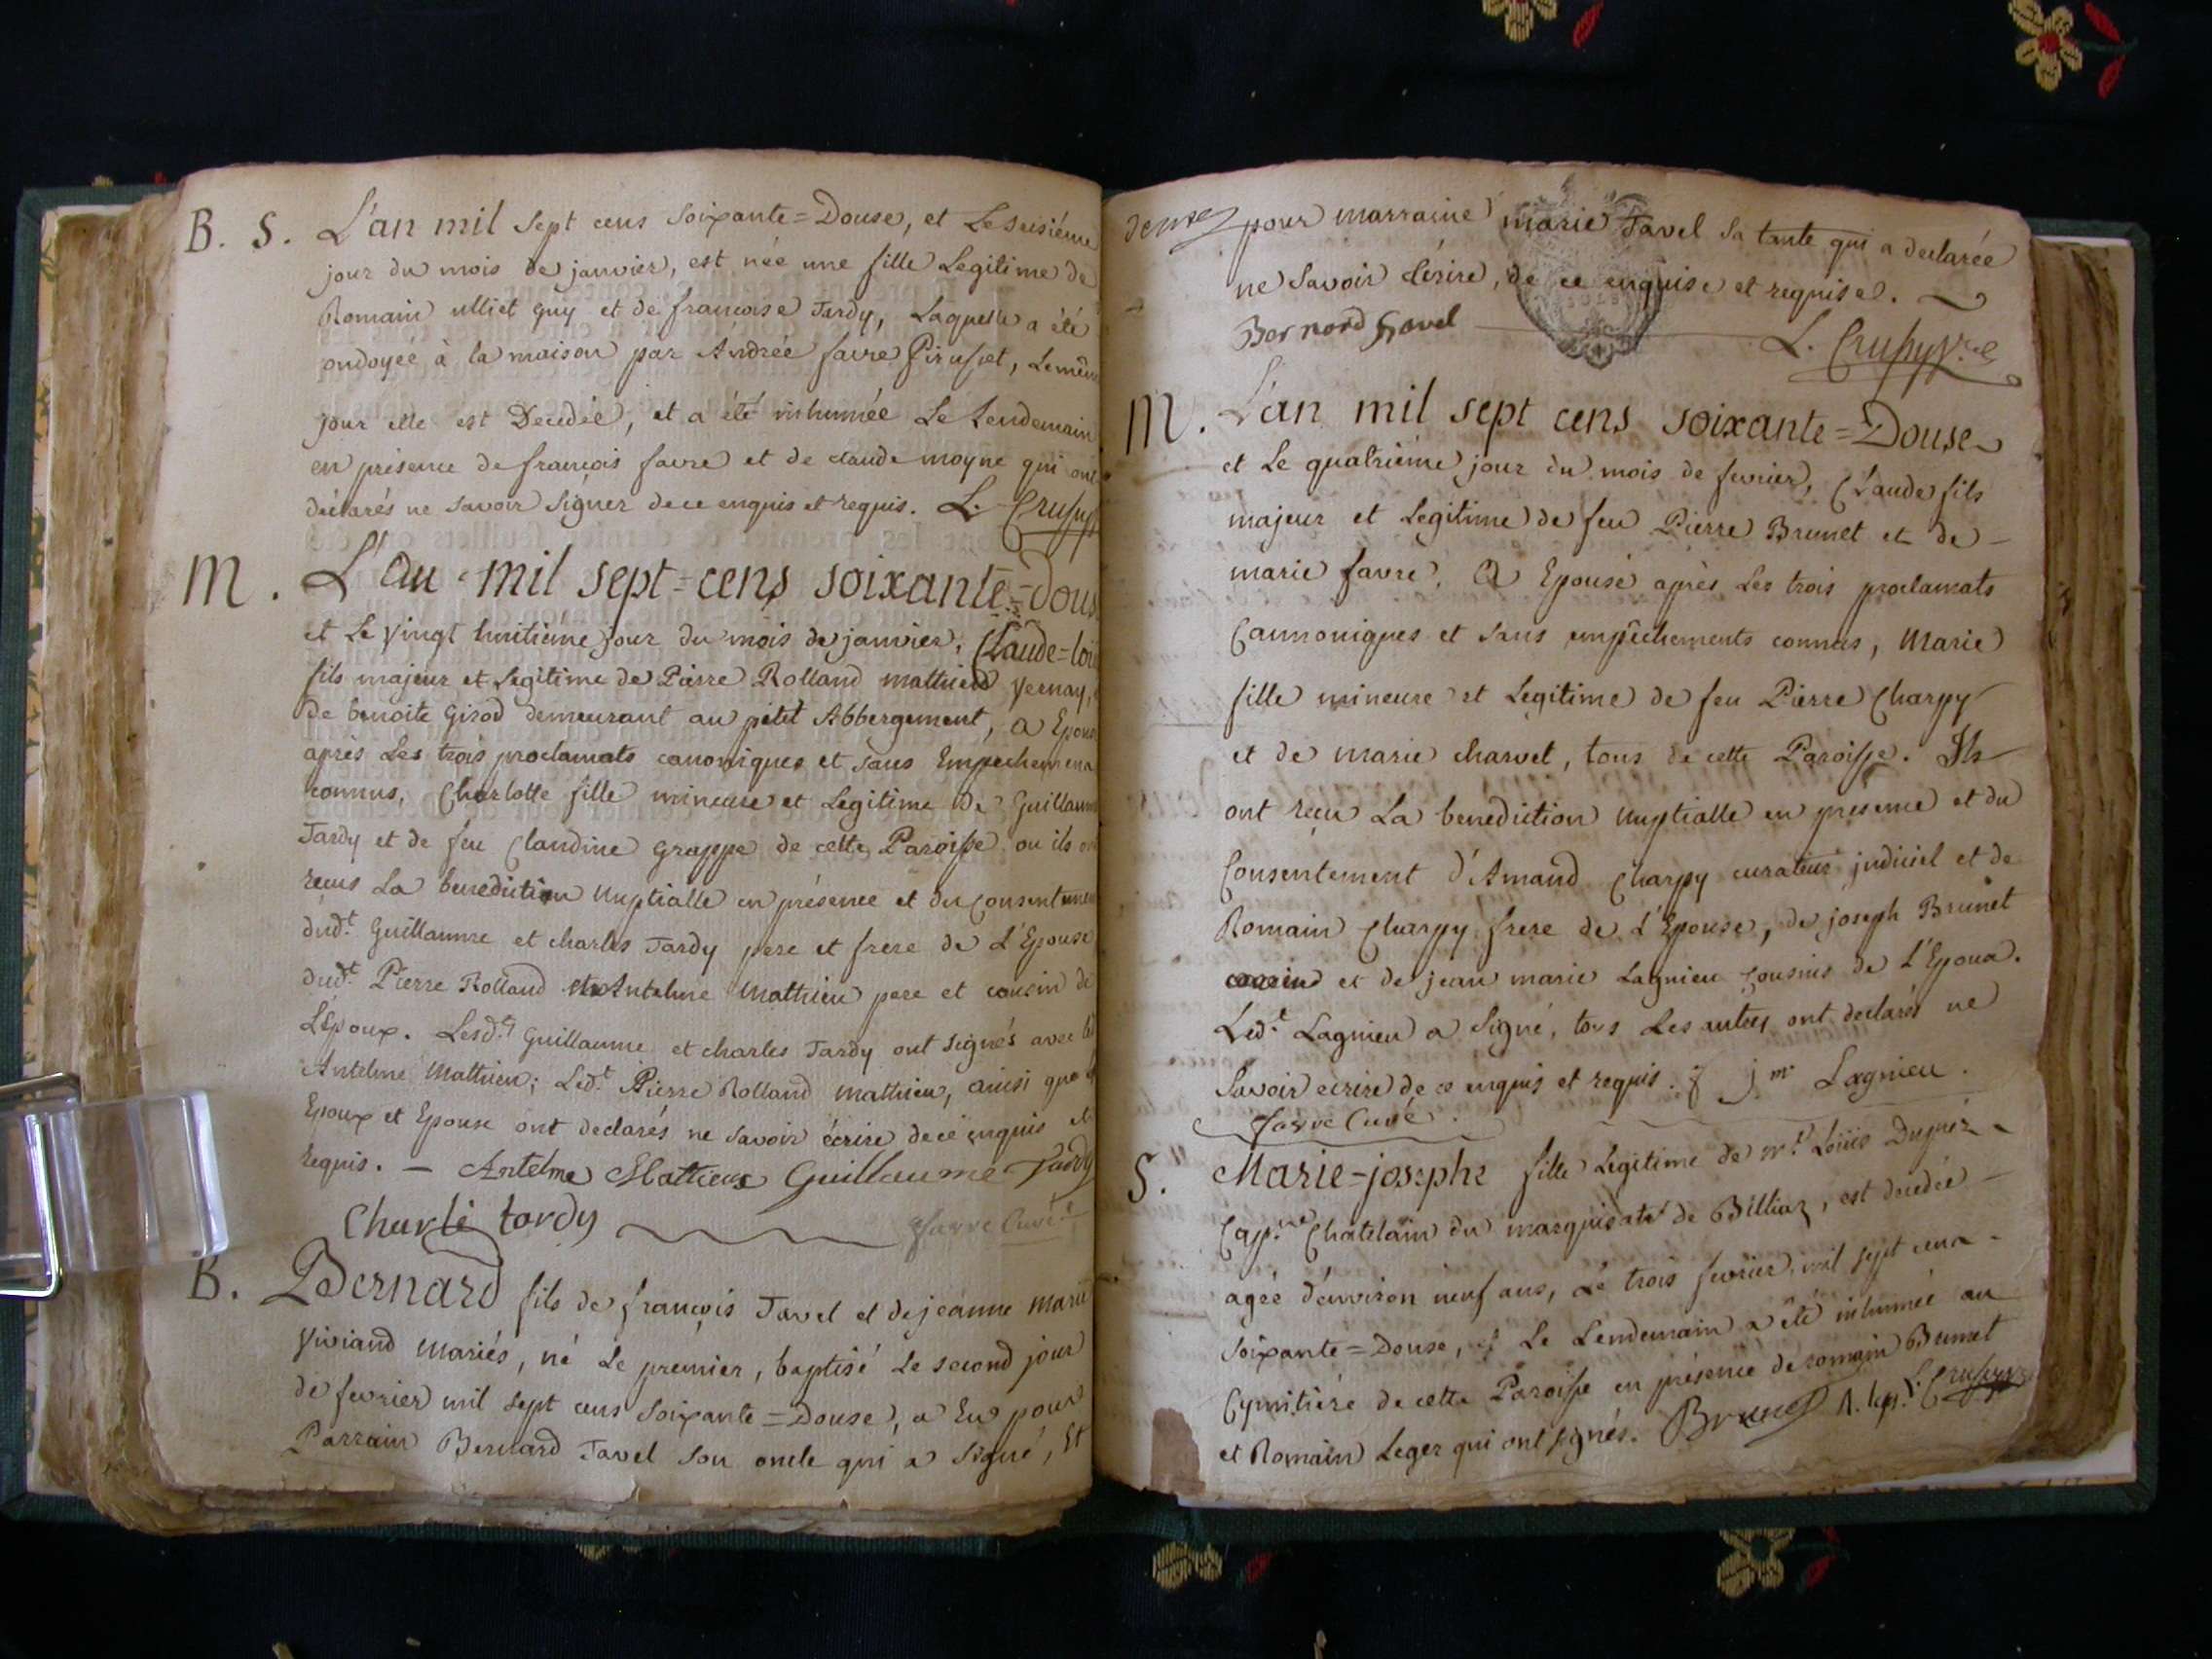 B. S. L'an mil sept cens soixante=Douse, et Le seisiéme
jour du mois de janvier, est née une fille Legitime de
Romain ulliet guy et de francoise Tardy, Laquelle a été
ondoyée à la maison par Andrée favre Pirusset, Le même
jour elle est Decedée, et a été inhumée Le Lendemain
en présence de francois favre et de claude moyne qui ont
déclarés ne savoir Signer de ce enquis et requis. L. Crussy
M. L'an mil sept=cens soixante=Dous
et Le vingt huitiéme jour du mois de janvier, Claude=
fils majeur et Legitime de Pierre Rolland mathieu vernay,
De benoite Girod demeurant au petit Abbergement, a Epous
après Les trois proclamats canoniques et sans Empechemens
connus, Charlotte fille mineure et Legitime De Guillaum
Tardy et de feu Claudine grappe de cette Paroisse ou ils
recus La benediction Nuptialle en présence et du Consentemen
dud.t Guillaume et charles Tardy pere et frere de L'Epouse
dud.t Pierre Rolland Antelme Mathieu pere et cousin de
L'Epoux. Lesd.ts Guillaume et charles Tardy ont signés avec
Antelme Mathieu; Led.t Pierre Rolland mathieu, ainsi que
Epoux et Epouse ont declarés ne savoir écrire de cè enquis et
requis. — Antelme Mathieu Guillaume Tardy
Charle tardy favre Curé
B. Bernard fils de francois Tavel et de jeanne marie
Viviand Mariés, né Le premier, baptisé Le second jour
de fevrier mil sept cens soixante=Douse, a Eu pour
Parrain Bernard Tavel son oncle qui a signé, Et
pour marraine marie Tavel Sa tante qui a declarée
ne Savoir écrire, de ce enquise et requise.
Bernord tavel L. Crussy V.re
M. L'an mil sept cens soixante=Douse
et Le quatriéme jour du mois de fevrier, Claude fils
majeur et Legitime de feu Pierre Brunet et de
marie favre, a Epousé après Les trois proclamats
Cannoniques et sans empêchements connus, Marie
fille mineure et Legitime de feu Pierre Charpy
et de marie charvet, tous de cette Paroisse. Ils
ont recu La benediction Nuptialle en présence et du
Consentement d'Amand Charpy curateur judiciel et de
Romain Charpy frere de L'Epouse, de joseph Brunet
cousin et de jean marie Lagnieu Cousins de L'Epoux.
Led.t Lagnieu a Signé, tous Les autres ont declarés ne
Savoir ecrire de ce enquis et requis. j m Lagnieu.
favre Curé.
S. Marie=josephe fille Legitime de m.r Loüis
Chatelain du marquisat de Billiaz, est decedée
agée d'environ neuf ans, Le trois fevrier mil sept cens
soixante=Douse, et Le Lendemain a été inhumée au
Cymitière de cette Paroisse en présence de romain Brunet
et Romain Leger qui ont signés. Brunet R. leger L. Crussy V.re